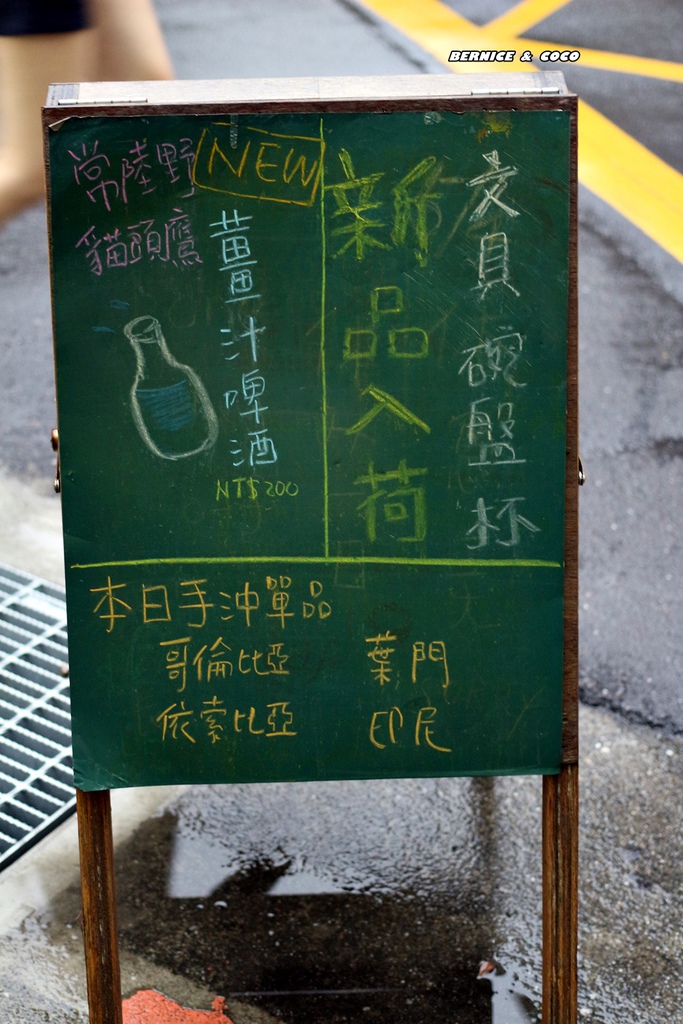 BERNICE & COCO
常陸野
貓頭鷹
NEW
薑汁啤酒
NT$200
新品入荷
友貝碗盤杯
本日手沖單品
哥倫比亞 葉門
依索比亞 印尼